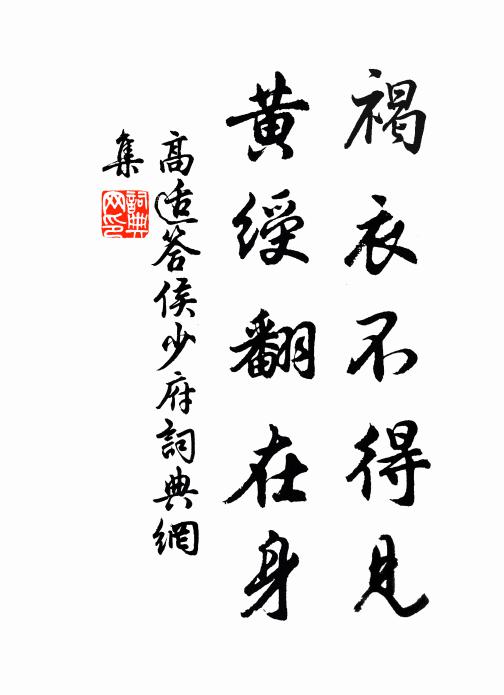 褐衣不得見
黄綬翻在身
高适答侯少府詞典網
集
詞典
网印